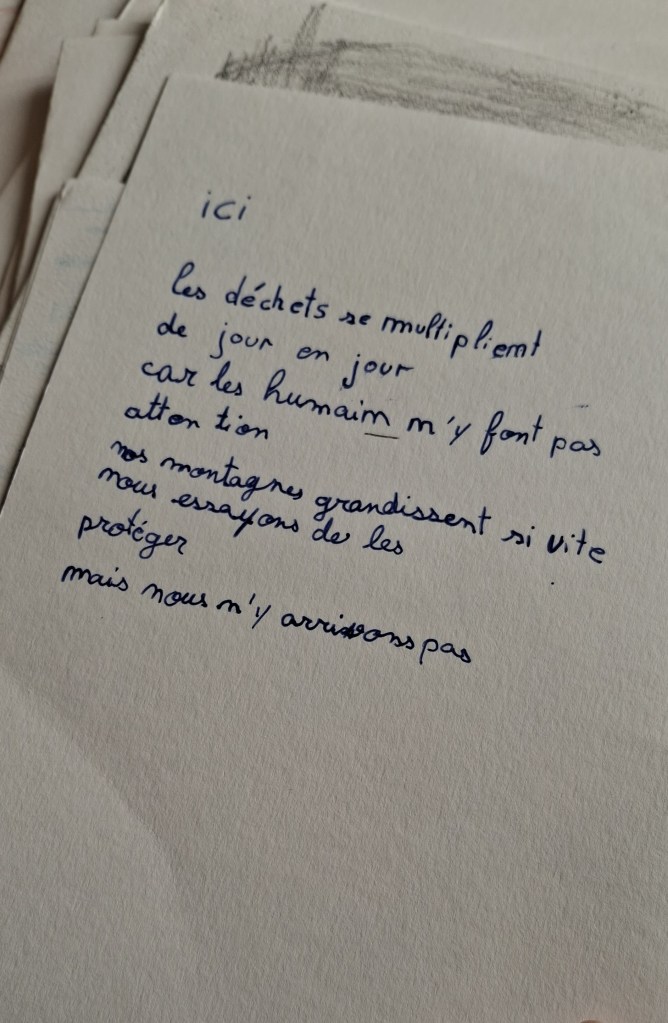 ici
les déchets se multiplient
de jour en jour
car les humain n'y font pas
attention
nos montagnes grandissent si vite
nous essayons de les
protéger
mais nous n'y arrivons pas